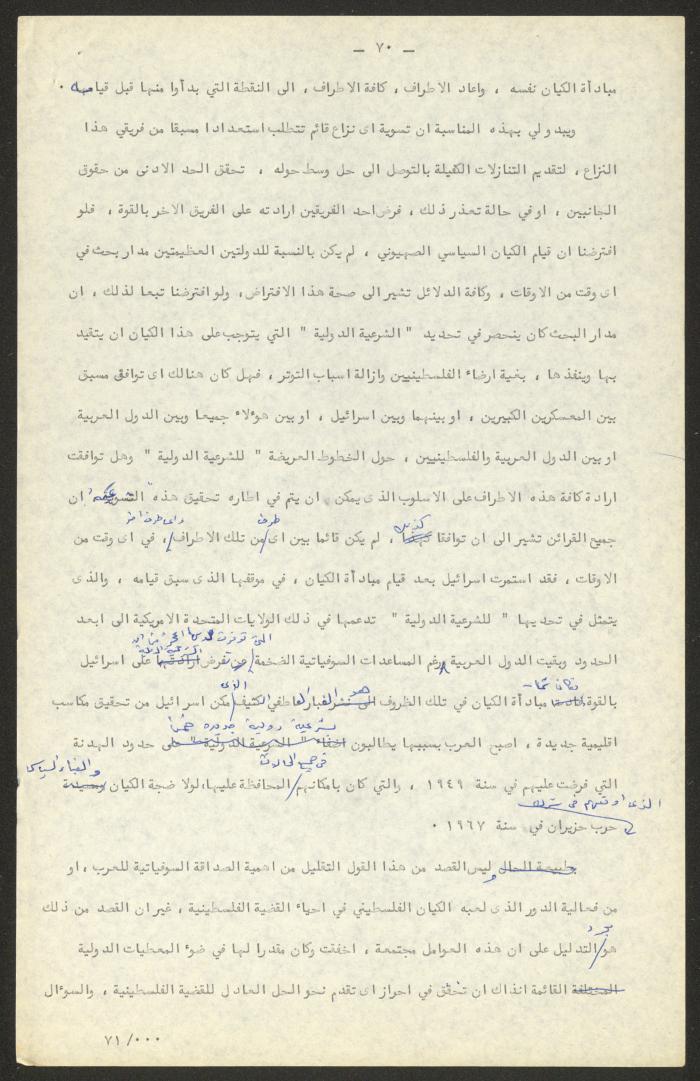 — ٧٠ —
مبادأة الكيان نفسه ، واعاد الاطراف ، كافة الاطراف ، الى النقطة التي بدأوا منها قبل قيامه .
ويبدو لي بهذه المناسبة ان تسوية اى نزاع قائم تتطلب استعدادا مسبقا من فريقي هذا
النزاع ، لتقديم التنازلات الكفيلة بالتوصل الى حل وسط حوله ، تحقق الحد الادنى من حقوق
الجانبين ، او في حالة تعذر ذلك ، فرض احد الفريقين ارادته على الفريق الاخر بالقوة ، فلو
افترضنا ان قيام الكيان السياسي الصهيوني ، لم يكن بالنسبة للدولتين العظيمتين مدار بحث في
اى وقت من الاوقات ، وكافة الدلائل تشير الى صحة هذا الافتراض ، ولو افترضنا تبعا لذلك ، ان
مدار البحث كان ينحصر في تحديد " الشرعية الدولية " التي يتوجب على هذا الكيان ان يتقيد
بها وينفذها ، بغية ارضاء الفلسطينيين وازالة اسباب التوتر ، فهل كان هنالك اى توافق مسبق
بين المعسكرين الكبيرين ، او بينهما وبين اسرائيل ، او بين هوٴلاء جميعا وبين الدول العربية
او بين الدول العربية والفلسطينيين ، حول الخطوط العريضة " للشرعية الدولية " وهل توافقت
ارادة كافة هذه الاطراف على الاسلوب الذى يمكن ان يتم في اطاره تحقيق هذه ان
طرف واى طرف اخر
جميع القرائن تشير الى ان توافقا كهذا ، لم يكن قائما بين اى من تلك الاطراف ، في اى وقت من
الاوقات ، فقد استمرت اسرائيل بعد قيام مبادأة الكيان ، في موقفها الذى سبق قيامه ، والذى
يتمثل في تحديها " للشرعية الدولية " تدعمها في ذلك الولايات المتحدة الامريكية الى ابعد
الحدود وبقيت الدول العربية رغم المساعدات السوفياتية الضخمة تفرض ارادتها على اسرائيل
الذى
بالقوة مبادأة الكيان في تلك الظروف الغبار العاطفي الكثيف مكن اسرائيل من تحقيق مكاسب
بشرعية دولية جديدة
اقليمية جديدة ، اصبح العرب بسببها يطالبون اخفاء " الشرعية الدولية " على حدود الهدنة
والغباء السياسي
التي فرضت عليهم في سنة ١٩٤٩ ، والتي كان بامكانهم المحافظة عليها، لولا ضجة الكيان
الذى اوقعهم فى شرك
حرب حزيران في سنة ١٩٦٧ .
بطبيعة الحال وليس القصد من هذا القول التقليل من اهمية الصداقة السوفياتية للعرب ، او
من فعالية الدور الذى لعبه الكيان الفلسطيني في احياء القضية الفلسطينية ، غير ان القصد من ذلك
مجرد
هو التدليل على ان هذه العوامل مجتمعة ، اخفقت وكان مقدرا لها في ضوٴ المعطيات الدولية
القائمة انذاك ان تخفق في احراز اى تقدم نحو الحل العادل للقضية الفلسطينية ، والسوٴال
٧١/٠٠٠